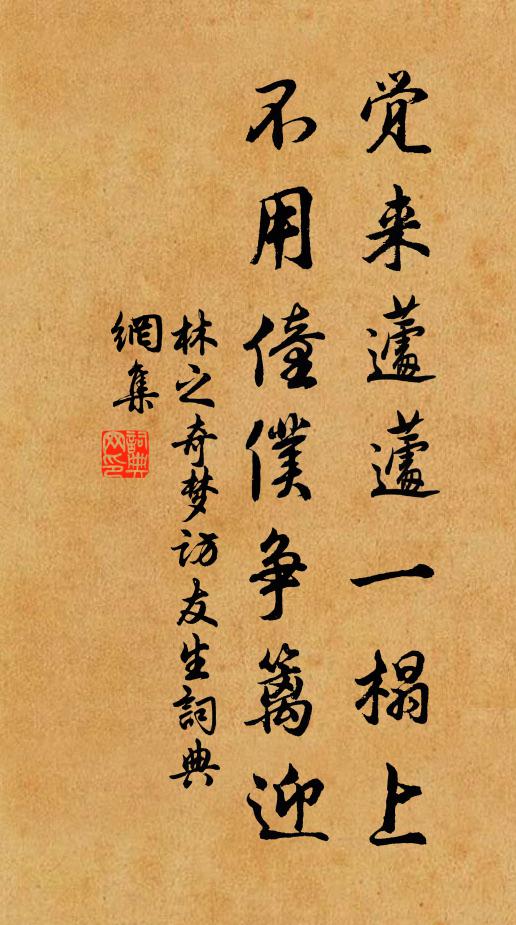 觉来蘧蘧一榻上
不用僮僕争篱迎
林之奇梦访友生詞典
網集
詞典
网印